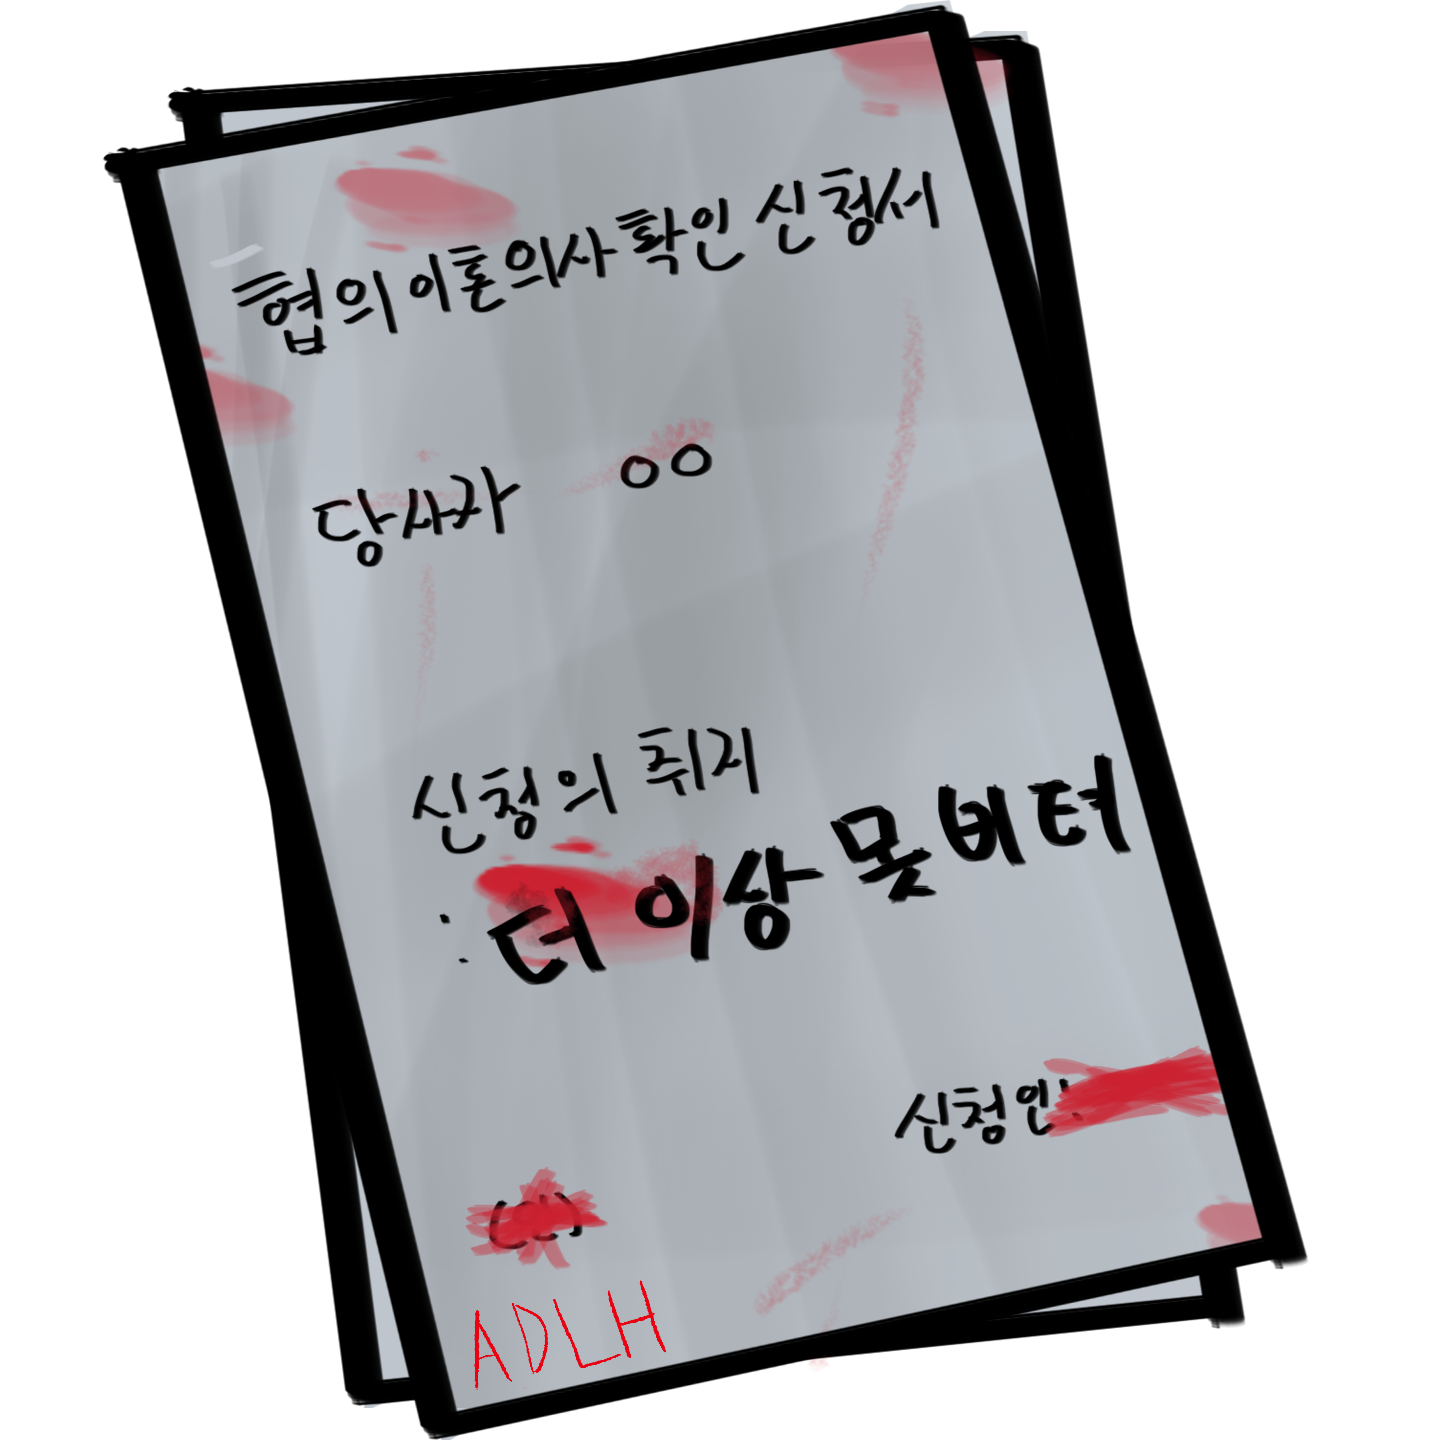 협의 이혼의사 확인 신청서
당사자 ㅇㅇ
신청의 취지
: 더 이상 못 버텨
신청인:
ADLH